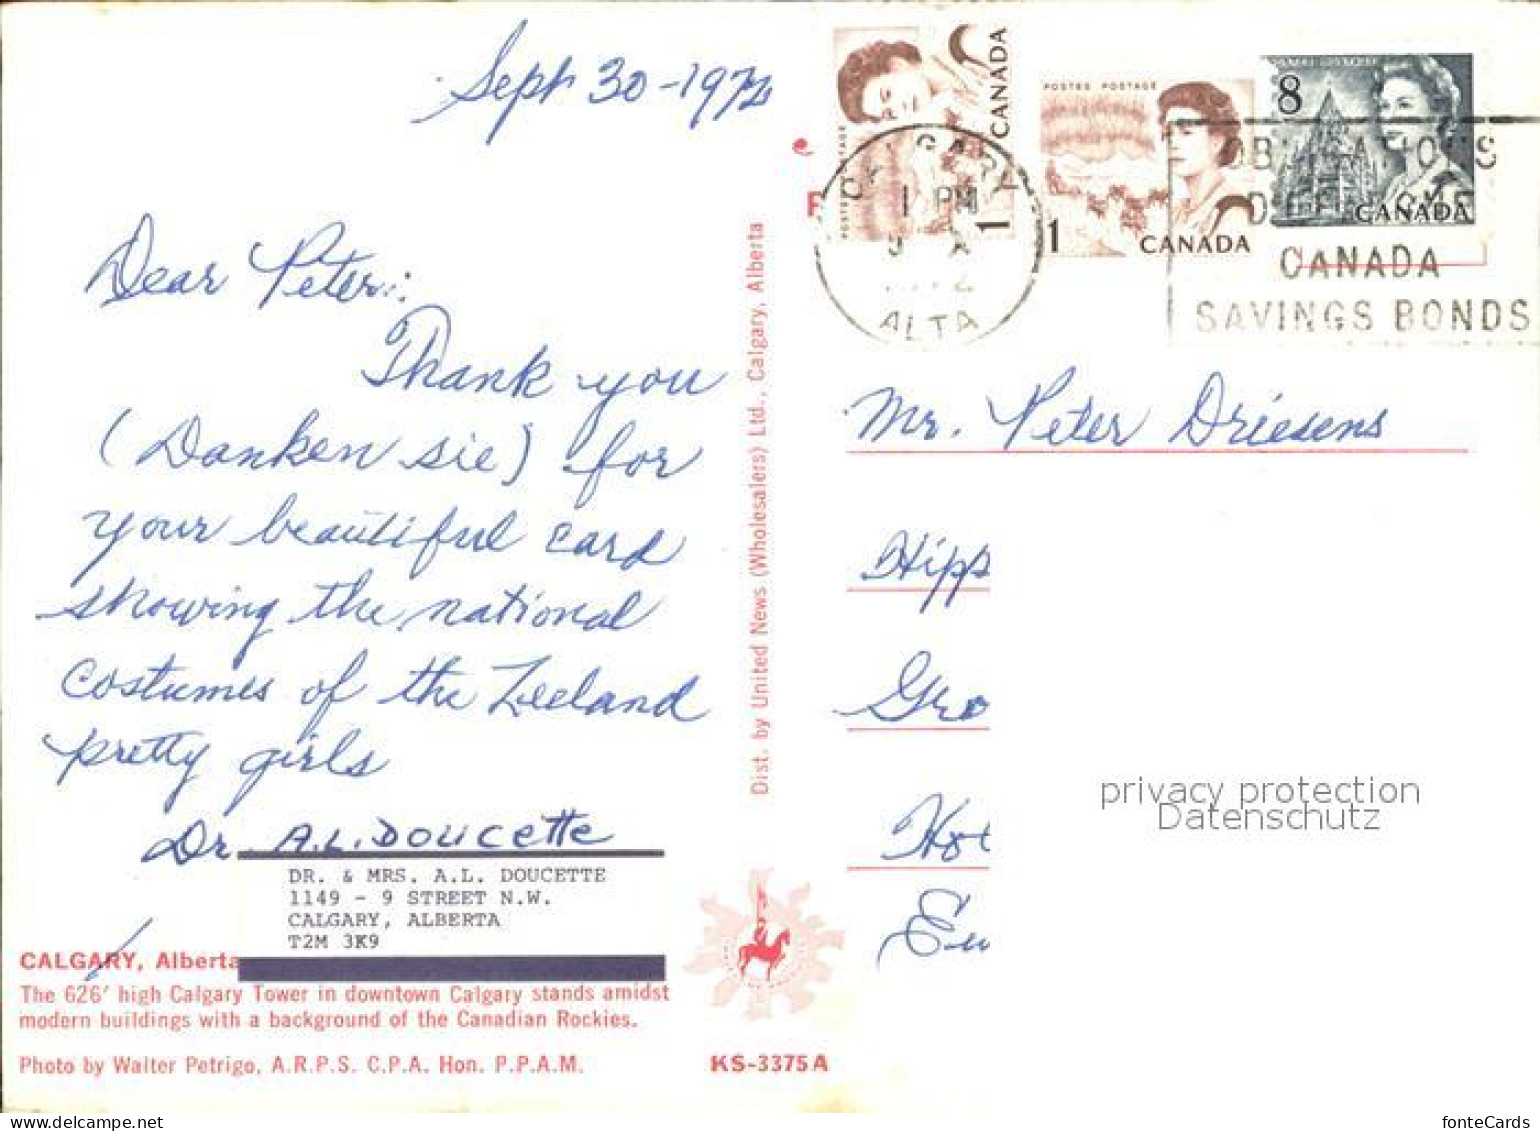 Sept 30-1972
Dear Peter:
Thank you
(Danken sie) for
your beautiful card
showing the national
costumes of the Zeeland
pretty girls
Dr. A.L. Doucette
DR. & MRS. A.L. DOUCETTE
1149 - 9 STREET N.W.
CALGARY, ALBERTA
T2M 3K9
CALGARY, Alberta
The 626' high Calgary Tower in downtown Calgary stands amidst
modern buildings with a background of the Canadian Rockies.
Photo by Walter Petrigo, A.R.P.S. C.P.A. Hon. P.P.A.M.
KS-3375A
Dist. by United News (Wholesalers) Ltd., Calgary, Alberta
CANADA
1
POSTES POSTAGE
1
CANADA
8
CANADA
CALGARY
1 PM
ALTA
CANADA
SAVINGS BONDS
Mr. Peter Driesens
Hipp
Gro
privacy protection
Datenschutz
fonteCards